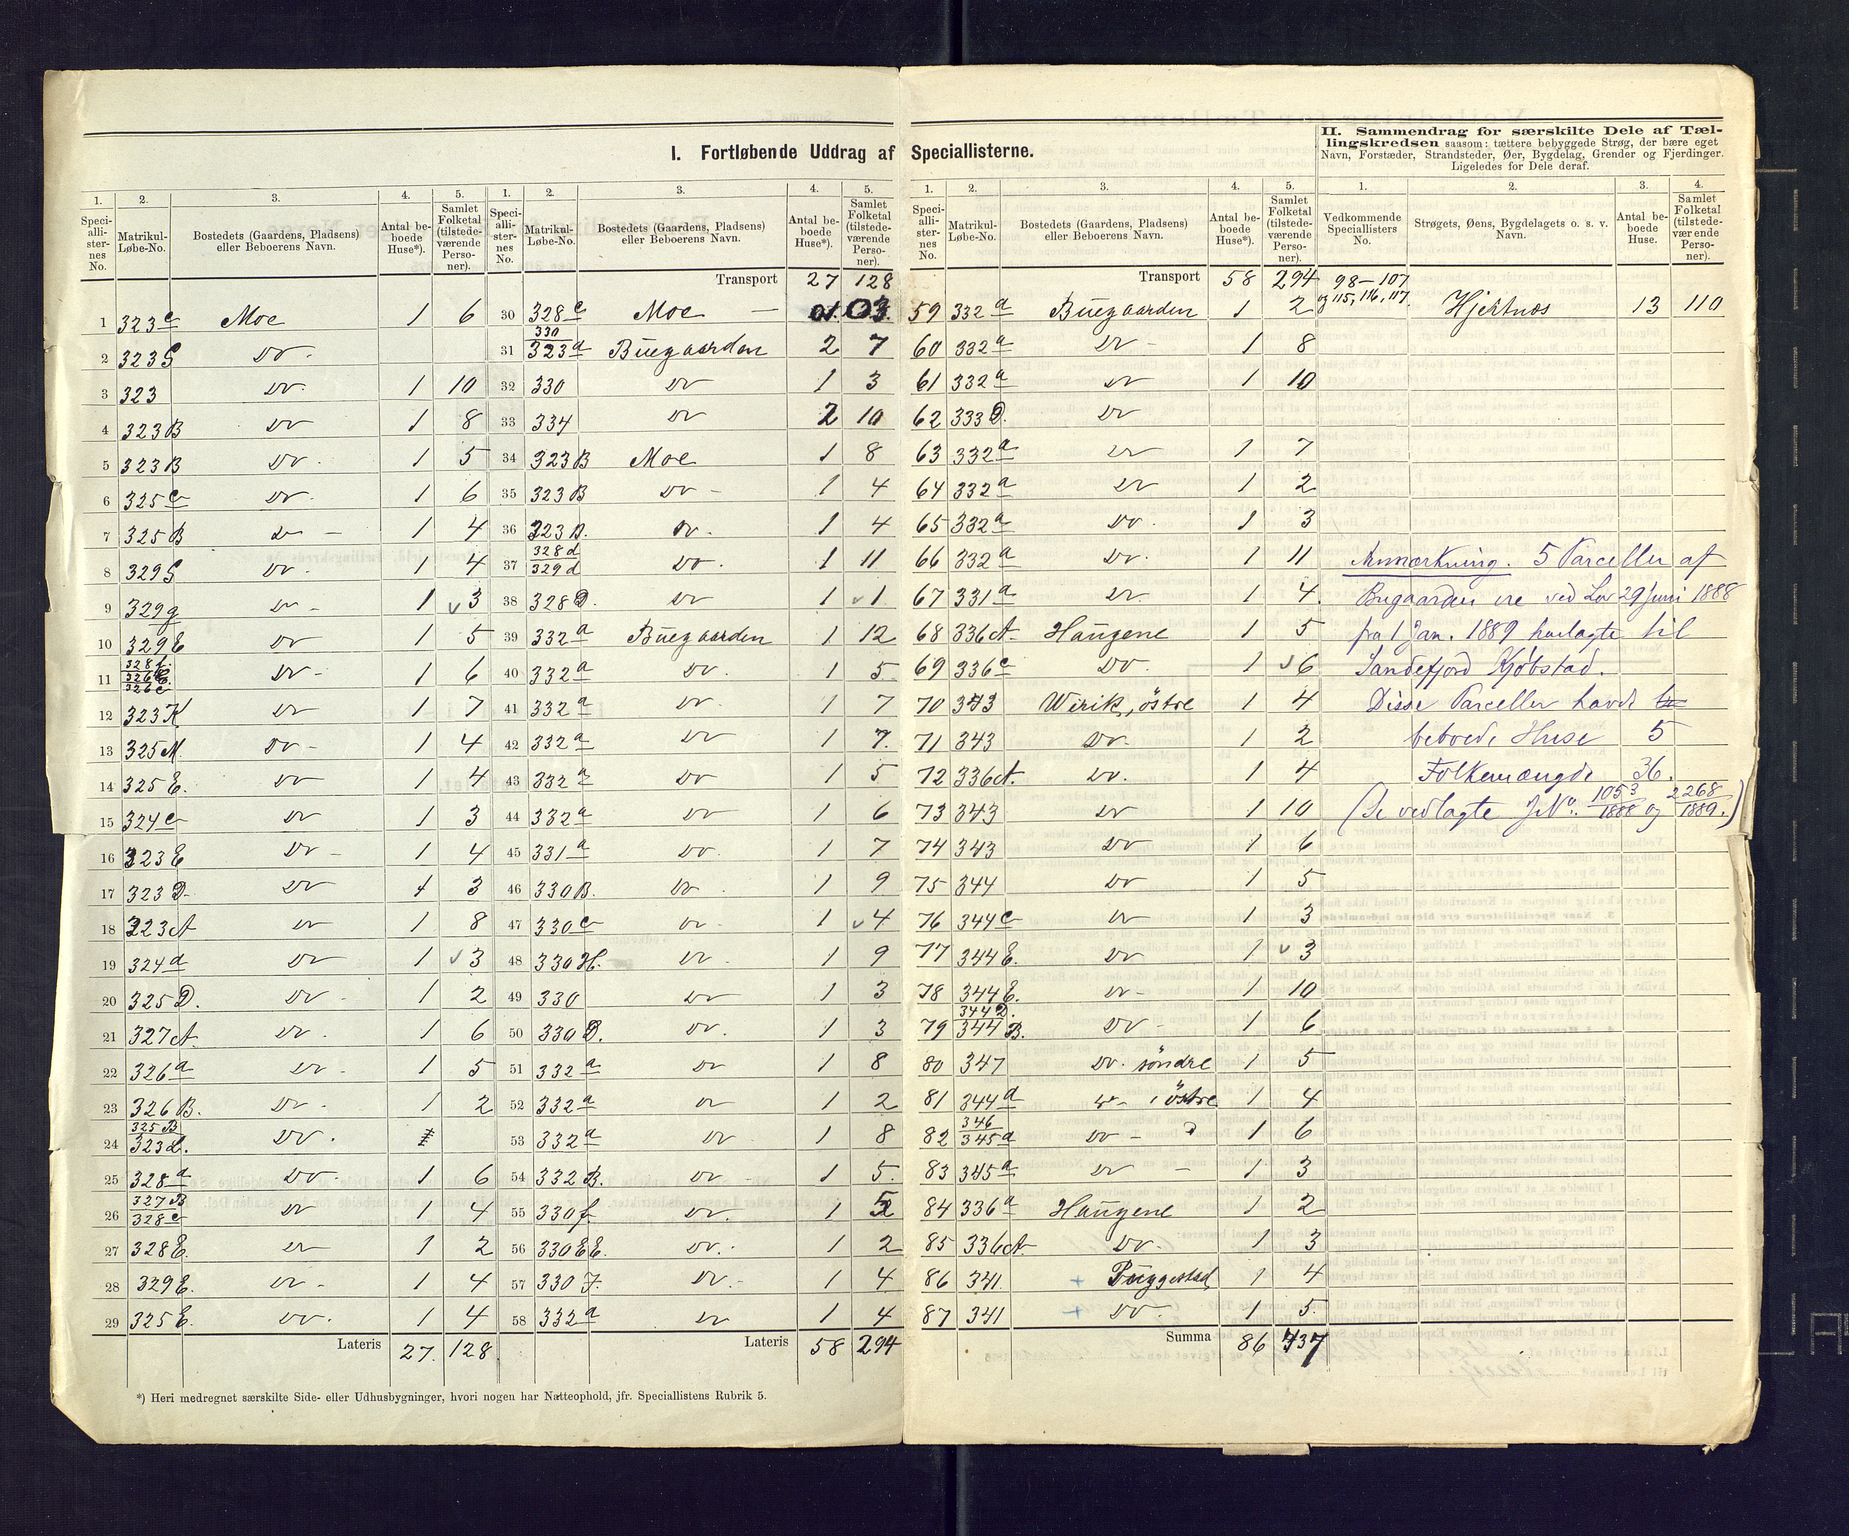 I. Fortløbende Uddrag af Speciallisterne.
II. Sammendrag for særskilte Dele af Tællingskredsen saasom: tættere bebyggede Strøg, der bære eget
Navn, Forstæder, Strandsteder, Øer, Bygdelag, Grender og Fjerdinger.
Ligeledes for Dele deraf.
1. 2. 3. 4. 5. 1. 2. 3. 4. 5.
Speciallisternes No. Matrikul-Løbe-No. Bostedets (Gaardens, Pladsens) eller Beboerens Navn. Antal beboede Huse*). Samlet Folketal (tilstedeværende Personer).
Speciallisternes No. Matrikul-Løbe-No. Bostedets (Gaardens, Pladsens) eller Beboerens Navn. Antal beboede Huse*). Samlet Folketal (tilstedeværende Personer).
Transport 27 128
1 323c Moe 1 6
2 323G Do.
3 323 Do. 1 10
4 323B Do 1 8
5 323B Do. 1 5
6 325c Do. 1 6
7 325B Do 1 4
8 329G Do. 1 4
9 329g Do 1 3
10 329E Do 1 5
11 Do 1 6
12 323K Do 1 7
13 325M Do 1 4
14 325E. Do 1 4
15 324c Do 1 3
16 323E Do 1 4
17 323D. Do 1 3
18 323A Do 1 8
19 324a Do 1 3
20 325D. Do 1 2
21 327A. Do. 1 6
22 326a Do. 1 5
23 326B. Do. 1 2
24 325B 323L. Do.
25 328a Do. 1 6
26 327B 328c Do 1 4
27 328E Do 1 2
28 329E. Do 1 4
29 325E. Do. 1 4
Lateris 27. 128.
30 328c Moe
31 330 323a Buegaarden 2 7
32 330 Do 1 3
33 334 Do 2 10
34 323B Moe 1 8
35 323B Do 1 4
36 323B. Do. 1 4
37 328d 329d Do. 1 11
38 328D. Do 1 1
39 332a Buegaarden 1 12
40 332a Do. 1 5.
41 332a Do. 1 7
42 332a Do 1 7.
43 332a Do 1 5
44 332a Do 1 6
45 331a Do. 1 7
46 330B. Do. 1 9
47 330c Do. 1 4
48 330H. Do. 1 9
49 330 Do 1 3
50 330D. Do. 1 3
51 332a Do 1 8
52 332a Do 1 2
53 332a Do 1 8
54 332B. Do 1 5.
55 330f. Do. 1
56 330EE. Do. 1 2
57 330J. Do. 1 4
58 332a Do 1 4
Lateris 58 294
*) Heri medregnet særskilte Side- eller Udhusbygninger, hvori nogen har Natteophold, jfr. Speciallistens Rubrik 5.
1. 2. 3. 4. 5.
Speciallisternes No. Matrikul-Løbe-No. Bostedets (Gaardens, Pladsens) eller Beboerens Navn. Antal beboede Huse*). Samlet Folketal (tilstedeværende Personer).
Transport 58 294
59 332a Buegaarden 1 2
60 332a Do 1 8
61 332a Do 1 10
62 333D. Do
63 332a Do 1 7
64 332a Do 1 2
65 332a Do. 1 3
66 332a Do. 1 11
67 331a Do. 1 4.
68 336A. Haugene 1 5
69 336c Do. 1 6
70 343 Wirik, østre 1 4
71 343 Do. 1 2
72 336A. Do. 1 4
73 343 Do 1 10
74 343 Do 1 6
75 344 Do 1 5
76 344c Do 1 3
77 344E. Do 1 3
78 344E. Do 1 10
79 344D. 344B. Do 1 6
80 347 Do. søndre 1 5
81 344d Do, østre 1 4
82 346 345a Do 1 6
83 345a Do 1 3
84 336a Haugene 1 2
85 336A Do. 1 3
86 341 + Puggestad 1 4
87 341 + Do. 1 5.
Summa 86 437
1. 2. 3. 4.
Vedkommende Speciallisters No. Strøgets, Øens, Bygdelagets o. s. v. Navn. Antal beboede Huse. Samlet Folketal (tilstedeværende Personer).
98-107
og 115, 116, 117. Hjertnæs 13 110
Anmærkning. 5 Parceller af
Bugaarden ere ved Lov 29 Juni 1888
fra 1 Jan. 1889 henlagte til
Sandefjord Kjøbstad.
Disse Parceller havde
beboede Huse 5
Folkemængde 36.
(Se vedlagte JNo. 1053/1888 og 2268/1889.)